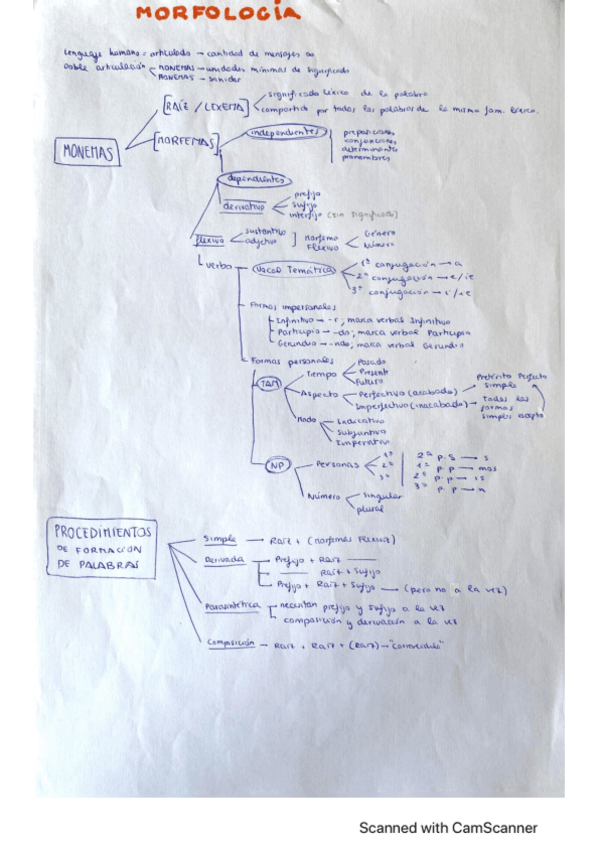 MORFOLOGÍA
Lenguaje humano = articulado → cantidad de mensajes ∞
Doble articulación MONEMAS → unidades mínimas de significado
MONEMAS → sonidos
MONEMAS
[RAÍZ / LEXEMA]
significado léxico de la palabra
compartido por todas las palabras de la misma fam. léxica.
[MORFEMAS]
independientes
preposiciones
conjunciones
determinantes
pronombres
dependientes
derivativo
prefijo
sufijo
interfijo (sin significado)
flexivo
sustantivo
adjetivo
morfema
flexivo
Género
Número
verbo
Vocal Temática
1ª conjugación → a
2ª conjugación → e/ie
3ª conjugación → i/ie
Formas impersonales
Infinitivo → -r; marca verbal Infinitivo
Participio → -do; marca verbal Participio
Gerundio → -ndo; marca verbal Gerundio
Formas personales
TAM
Tiempo
Pasado
Presente
Futuro
Aspecto
Perfectivo (acabado)
Pretérito Perfecto
Simple
Imperfectivo (inacabado)
Todas las
formas
simples excepto
Modo
Indicativo
Subjuntivo
Imperativo
NP
Personas
1ª
2ª
3ª
2ª p.s → s
1ª p.p → mos
2ª p.p → is
3ª p.p → n
Número
Singular
plural
PROCEDIMIENTOS
DE FORMACIÓN
DE PALABRAS
Simple → Raíz + (morfemas flexivos)
Derivada
Prefijo + Raíz
Raíz + Sufijo
Prefijo + Raíz + Sufijo → (pero no a la vez)
Parasintética
necesitan prefijo y sufijo a la vez
composición y derivación a la vez
Composición → Raíz + Raíz + (Raíz) →
Scanned with CamScanner